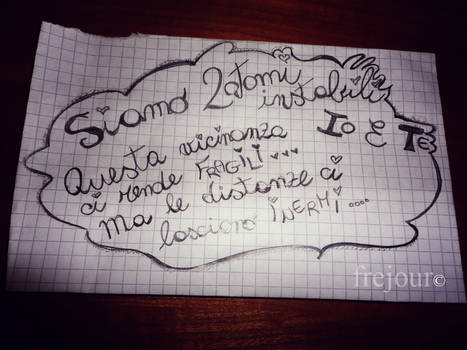 Siamo 2 atomi
instabili
Io E TE
Questa vicinanza
ci rende FRAGILI...
Ma le distanze ci
lasciano iNERMi....
frejour©